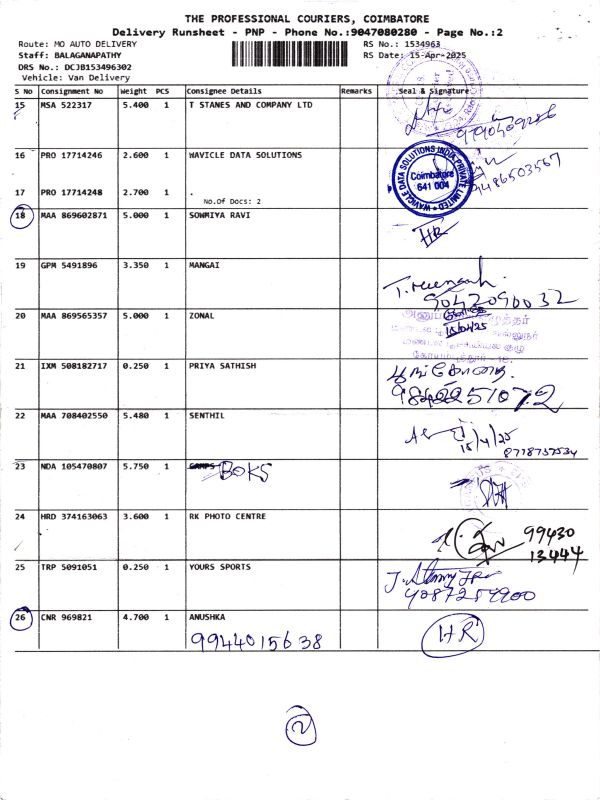 THE PROFESSIONAL COURIERS, COIMBATORE
Delivery Runsheet - PNP - Phone No.:9047080280 - Page No.:2
Route: MO AUTO DELIVERY RS No.: 1534963
Staff: BALAGANAPATHY RS Date: 15-Apr-2025
DRS No.: DCJB153496302
Vehicle: Van Delivery
S No Consignment No Weight PCS Consignee Details Remarks Seal & Signature
15 MSA 522317 5.400 1 T STANES AND COMPANY LTD
16 PRO 17714246 2.600 1 WAVICLE DATA SOLUTIONS
WAVICLE DATA SOLUTIONS INDIA PRIVATE LIMITED
Coimbatore
641 004
9486503567
17 PRO 17714248 2.700 1 .
No.Of Docs: 2
18 MAA 869602871 5.000 1 SOWMIYA RAVI
HR
19 GPM 5491896 3.350 1 MANGAI
9042090032
20 MAA 869565357 5.000 1 ZONAL
15/04/25
21 IXM 508182717 0.250 1 PRIYA SATHISH
பூங்கோதை
22 MAA 708402550 5.480 1 SENTHIL
15/4/25
8718757534
23 NDA 105470807 5.750 1 BOKS
24 HRD 374163063 3.600 1 RK PHOTO CENTRE
99430
13444
25 TRP 5091051 0.250 1 YOURS SPORTS
26 CNR 969821 4.700 1 ANUSHKA
9944015638
HR
2